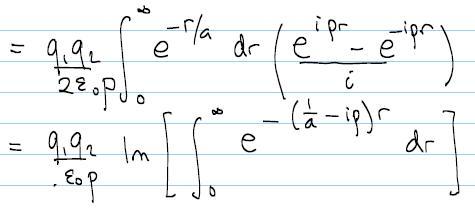 = q₁q₂/(2ε₀p) ∫₀^∞ e^(-r/a) dr ( (e^(ipr) - e^(-ipr)) / i )
= q₁q₂/(ε₀p) Im [ ∫₀^∞ e^(-(1/a - ip)r) dr ]